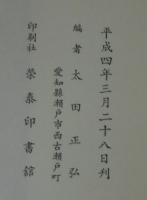 平成四年三月二十八日刊
編者　太田正弘
愛知縣瀬戸市西古瀬戸町
印刷社　榮泰印書舘